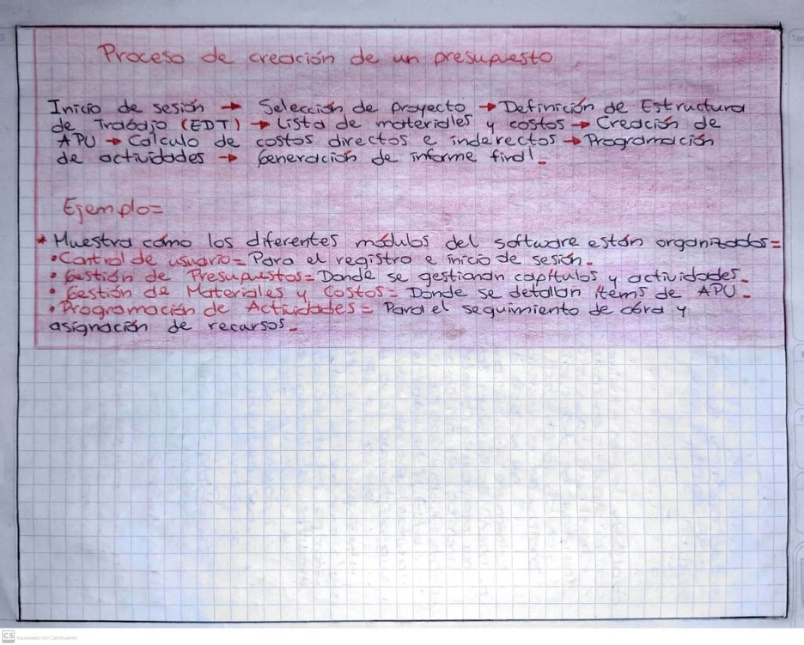 Proceso de creación de un presupuesto
Inicio de sesión → Selección de proyecto → Definición de Estructura
de Trabajo (EDT) → Lista de materiales y costos → Creación de
APU → Calculo de costos directos e inderectos → Programación
de actividades → Generación de informe final.
Ejemplo=
* Muestra cómo los diferentes módulos del software están organizados=
• Control de usuario= Para el registro e inicio de sesión.
• Gestión de Presupuestos= Donde se gestionan capítulos y actividades.
• Gestión de Materiales y Costos= Donde se detallan ítems de APU.
• Programación de Actividades= Para el seguimiento de obra y
asignación de recursos.
CS Escaneado con CamScanner